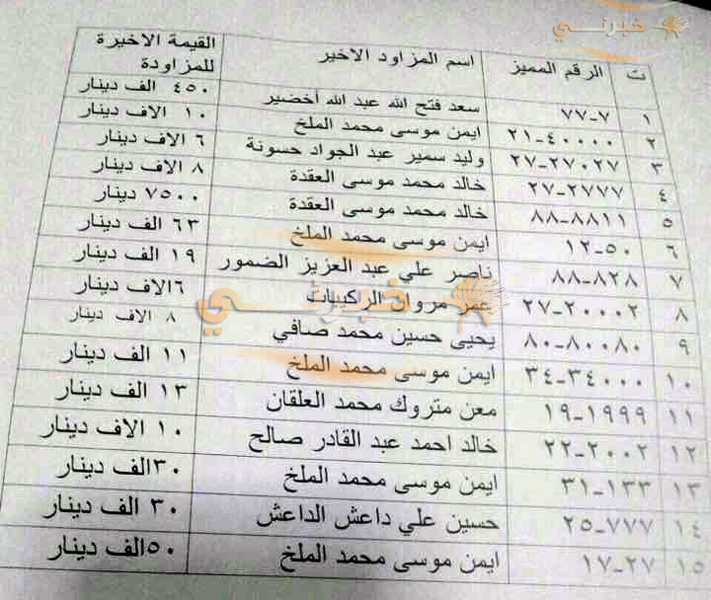 خبرني
ت الرقم المميز اسم المزاود الاخير القيمة الاخيرة للمزاودة
١ ٧-٧٧ سعد فتح الله عبد الله أخضير ٤٥٠ الف دينار
٢ ٤٠٠٠٠-٢١ ايمن موسى محمد الملخ ١٠ الاف دينار
٣ ٢٧٠٢٧-٢٧ وليد سمير عبد الجواد حسونة ٦ الاف دينار
٤ ٢٧٧٧-٢٧ خالد محمد موسى العقدة ٨ الاف دينار
٥ ٨٨١١-٨٨ خالد محمد موسى العقدة ٧٥٠٠ دينار
٦ ٥٠-١٢ ايمن موسى محمد الملخ ٦٣ الف دينار
٧ ٨٢٨-٨٨ ناصر علي عبد العزيز الضمور ١٩ الف دينار
٨ ٢٠٠٠٢-٢٧ عمر مروان الركيبات ٦الاف دينار
٩ ٨٠٠٨٠-٨٠ يحيى حسين محمد صافي ٨ الاف دينار
١٠ ٣٤٠٠٠-٣٤ ايمن موسى محمد الملخ ١١ الف دينار
١١ ١٩٩٩-١٩ معن متروك محمد العلقان ١٣ الف دينار
١٢ ٢٠٠٢-٢٢ خالد احمد عبد القادر صالح ١٠ الاف دينار
١٣ ١٣٣-٣١ ايمن موسى محمد الملخ ٣٠الف دينار
١٤ ٧٧٧-٢٥ حسين علي داعش الداعش ٣٠ الف دينار
١٥ ٢٧-١٧ ايمن موسى محمد الملخ ٥٠الف دينار
خبرني